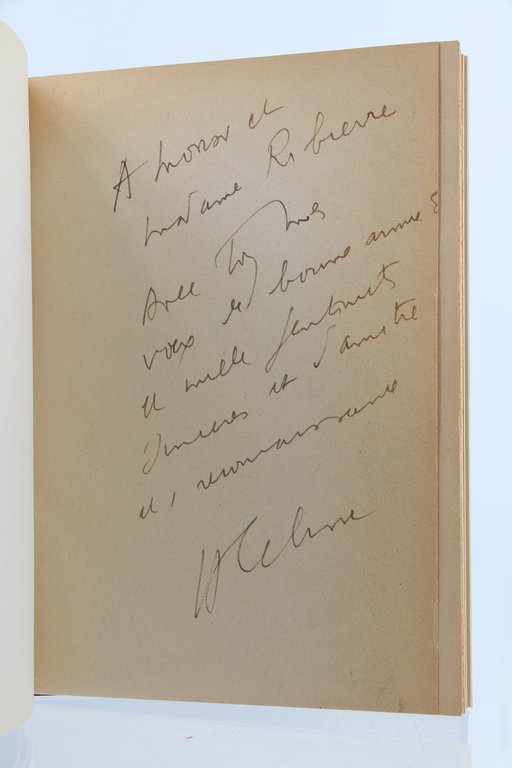 A Monsr et
Madame Ribierre
Avec tous mes
voeux de bonne année
et mille sentiments
sincères et d'amitié
et reconnaissance
LF Celine